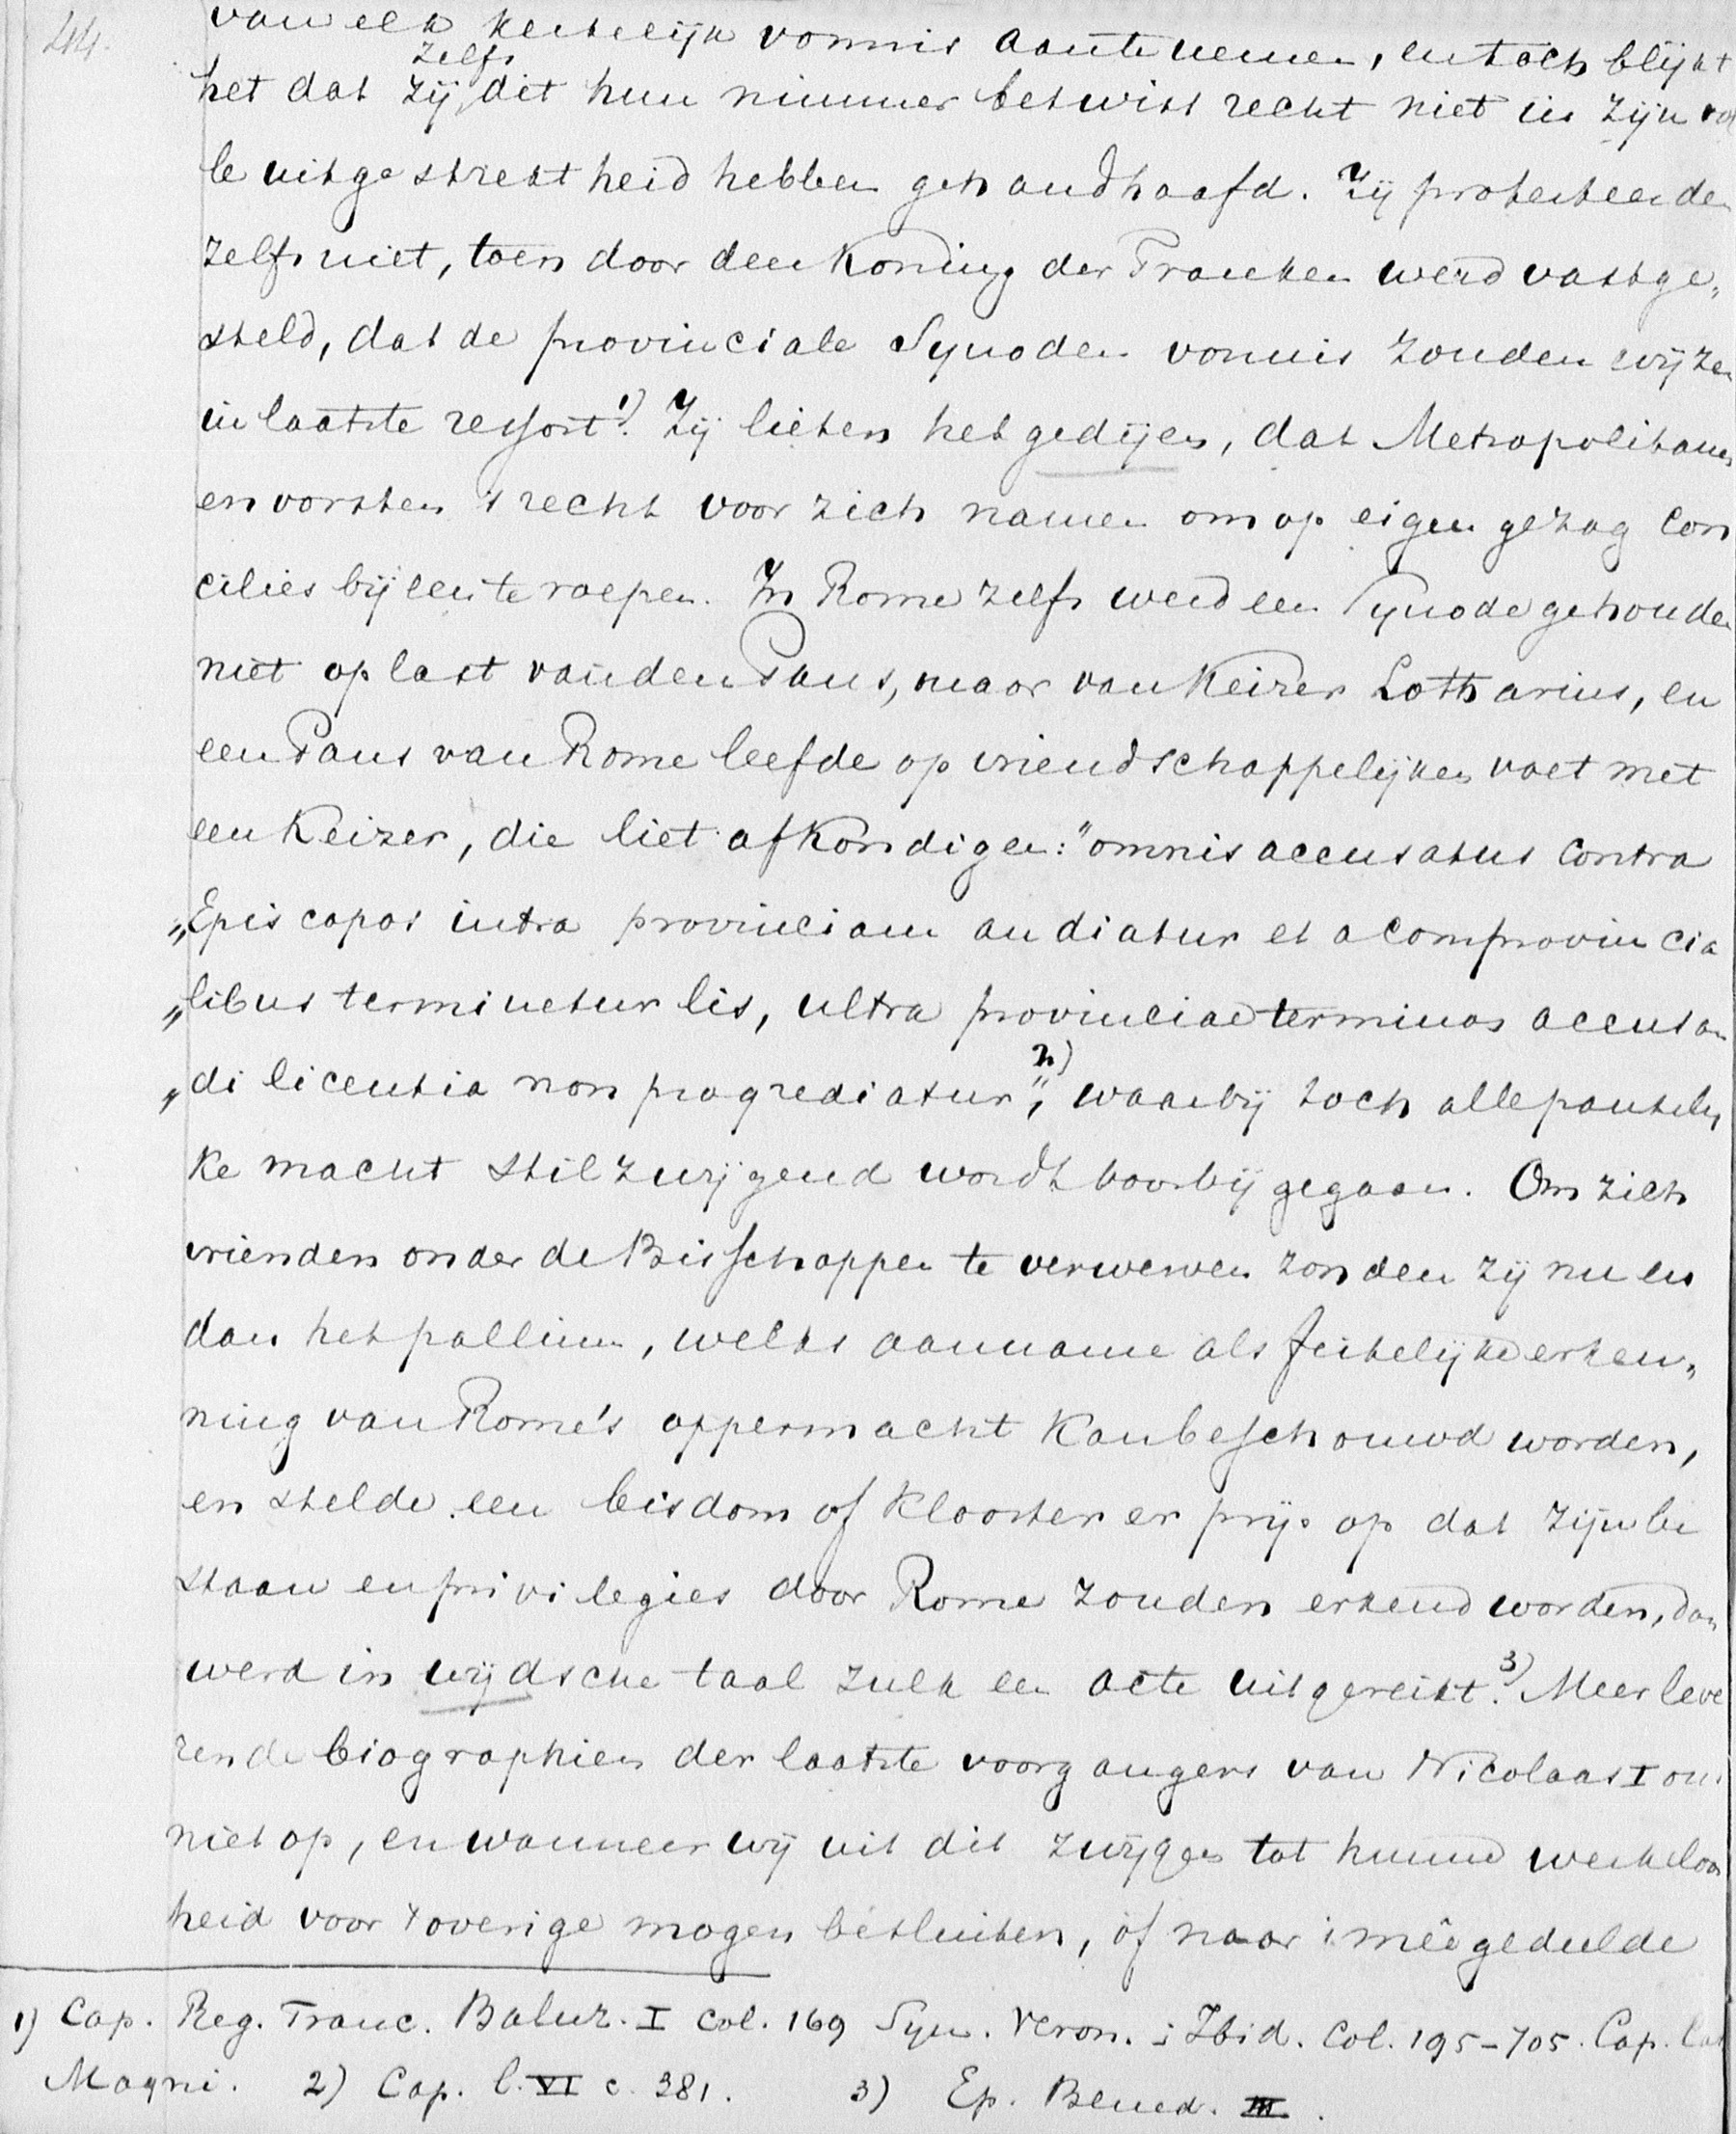 44.
van elk kerkelijk vonnis aan te nemen, en toch blijkt
zelfs
het dat zij dit hun nimmer betwist recht niet in zijn vol
le uitgestrektheid hebben gehandhaafd. Zij protesteerden
zelfs niet, toen door den Koning der Francken werd vastge„
steld, dat de provinciale Synoden vonnis zouden wijzen
in laatste ressort.1) Zij lieten het gedijen, dat Metropolitanen
en vorsten 't recht voor zich namen om op eigen gezag con
cilies bijeen te roepen. In Rome zelfs werd een Synode gehouden
niet op last van den Paus, maar van Keizer Lotharius, en
een Paus van Rome leefde op vriendschappelijken voet met
een Keizer, die liet afkondigen: "omnis accusatus contra
„Episcopos intra provinciam audiatur et a comprovincia
„libus terminetur lis, ultra provinciae terminos accusan
„di licentia non progrediatur,"2) waarbij toch alle pauselij
ke macht stilzwijgend wordt voorbij gegaan. Om zich
vrienden onder de Bisschoppen te verwerven zonden zij nu en
dan het pallium, welks aanname als feitelijke erken„
ning van Rome's oppermacht kan beschouwd worden,
en stelde een bisdom of klooster er prijs op dat zijn be
staan en privilegies door Rome zouden erkend worden, dan
werd in wijdsche taal zulk een acte uitgereikt.3) Meer leve
rende biographien der laatste voorgangers van Nicolaas I ons
niet op, en wanneer wij uit dit zwijgen tot hunne werkeloos
heid voor 't overige mogen besluiten, of naar
1) Cap. Reg. Franc. Baluz. I Col. 169 Syn. Veron. ; Ibid. Col. 195-705. Cap.
Magni. 2) Cap. l. VI c. 381. 3) Ep. Bened. III.